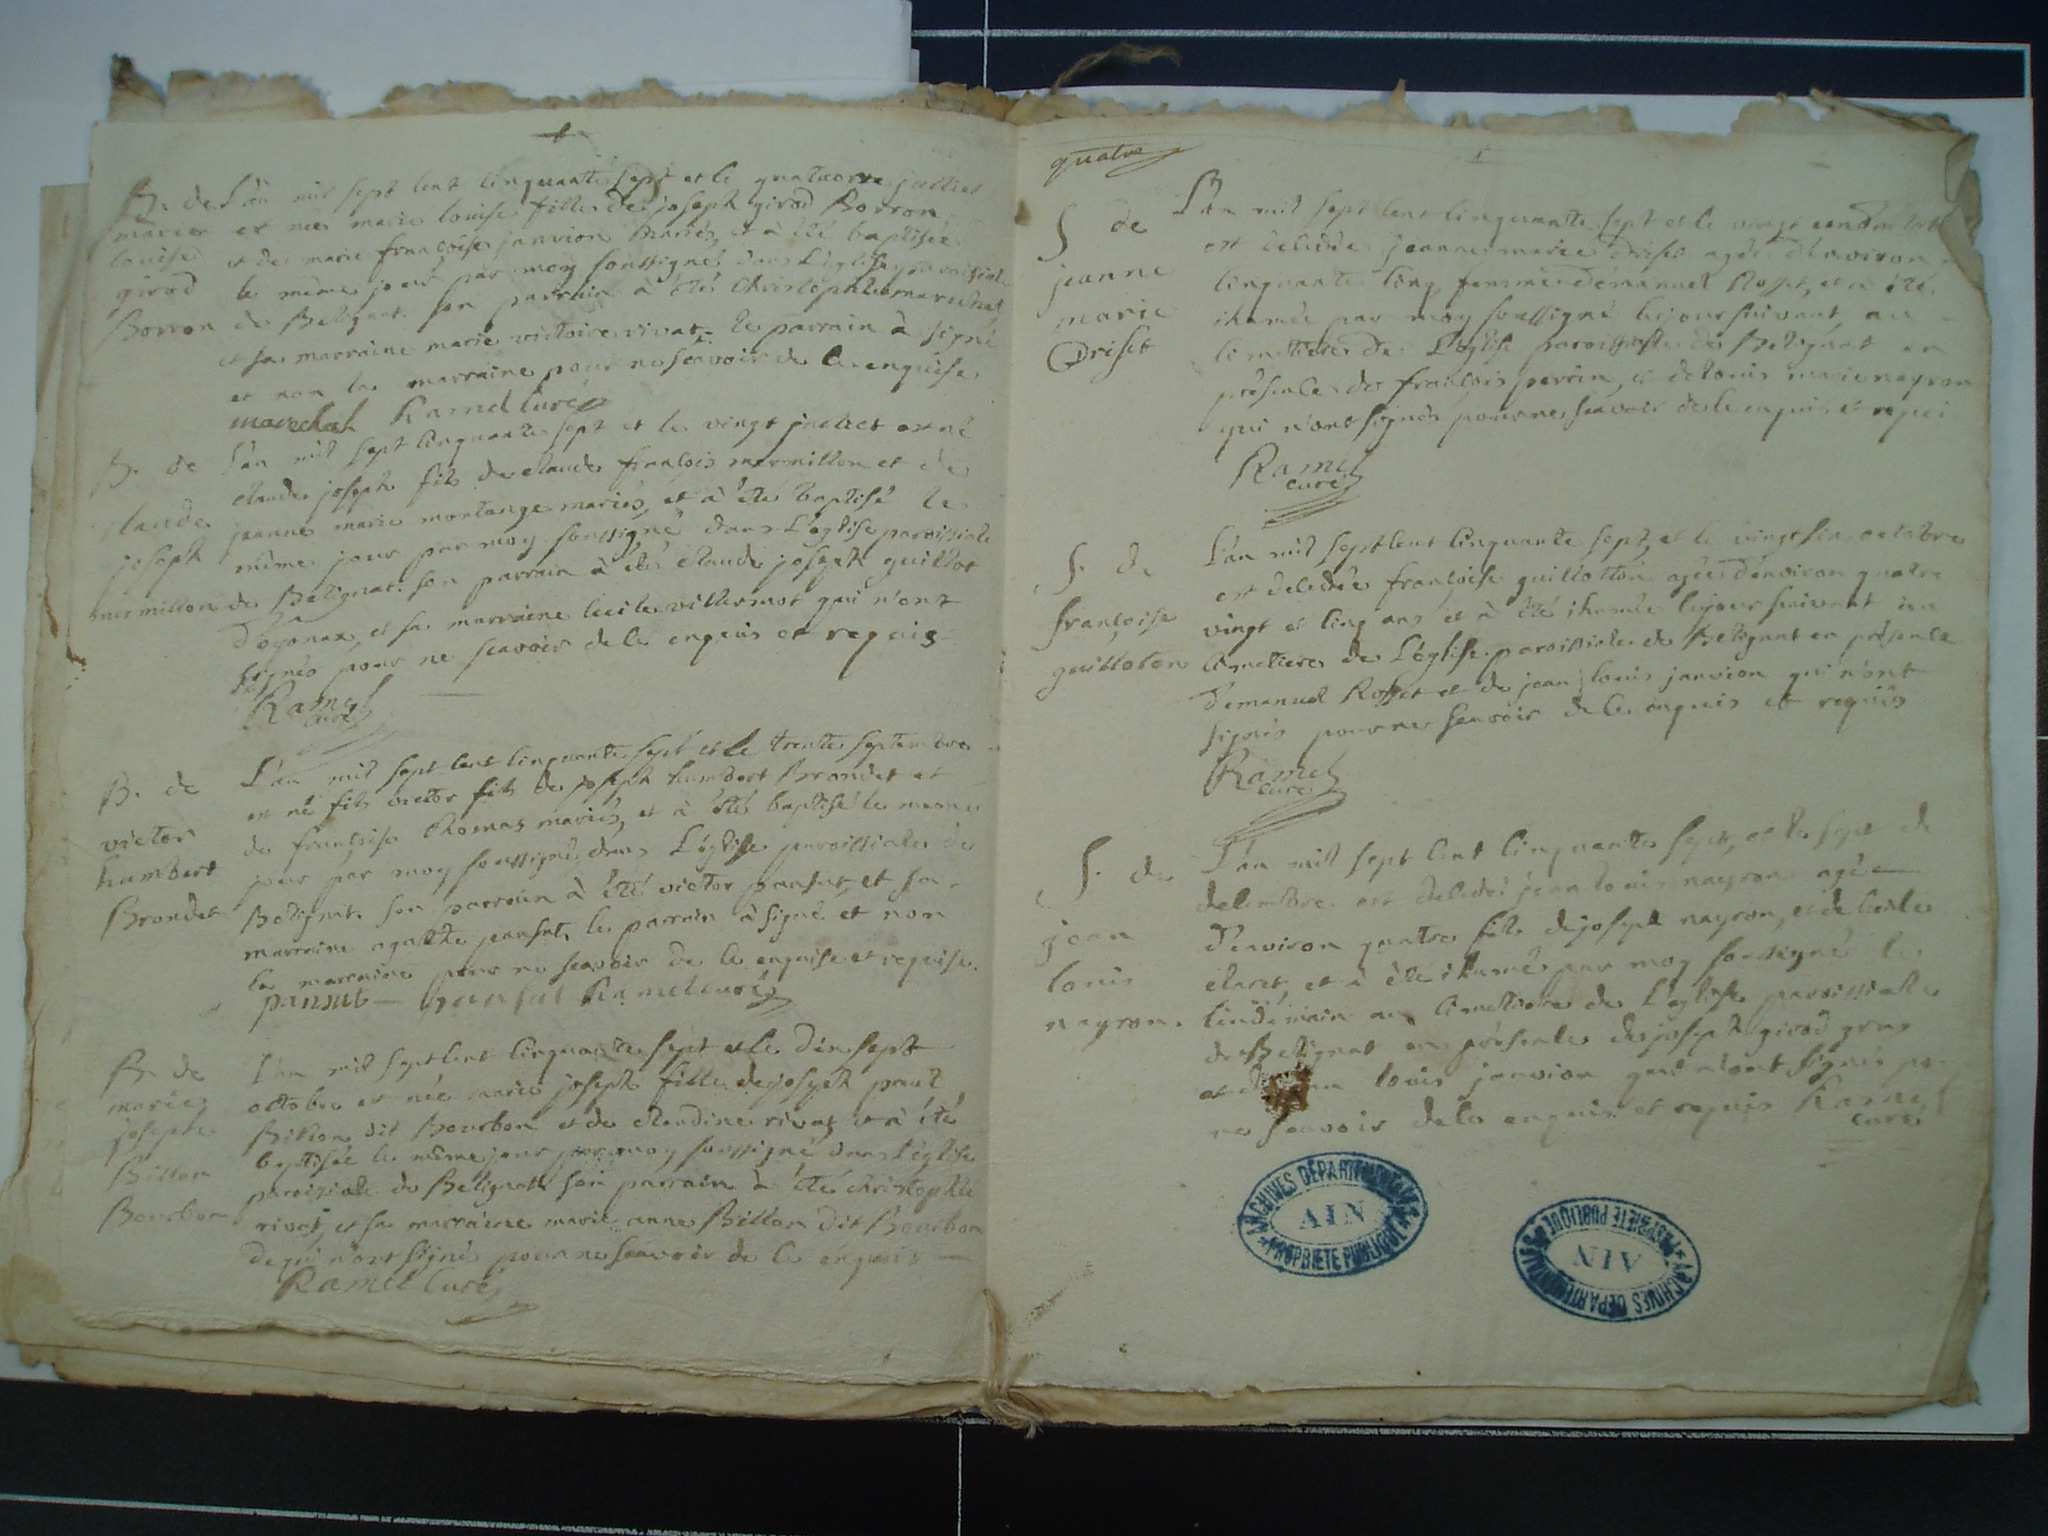 B. de
marie
louise
girod
Borron
L'an mil sept cent cinquante sept et le quatorze juillet
est née marie louise fille de joseph girod Borron
et de marie françoise janvion mariés, et à été baptisée
le même jour par moy soussigné dans L'église paroissiale
de Belignat. son parrain à été Christophle marechal
et sa marraine marie victoire rivat. le parrain à signé
et non la marraine pour ne sçavoir de ce enquise
marechal Ramel Curé
B. de
claude
joseph
mermillon
L'an mil sept cinquante sept et le vingt juillet est né
claude joseph fils de claude françois mermillon et de
jeanne marie montange mariés, et à été baptisé le
même jour par moy soussigné dans L'église paroissiale
de Belignat. son parrain à été claude joseph guillot
d'oyonax, et sa marraine cecile villermot qui n'ont
signés pour ne sçavoir de ce enquis et requis
Ramel
curé
B. de
victor
humbert
Brondet
L'an mil sept cent cinquante sept et le trente septembre
est né fils victor fils de joseph humbert Brondet et
de françoise thomas mariés, et à été baptisé le meme
jour par moy soussigné dans L'église paroissiale de
Belignat. son parrain à été victor pansut, et sa
marraine agathe pansut, le parrain à signé et non
la marraine pour ne sçavoir de ce enquise et requise.
pansut pansut Ramel curé
B. de
marie
joseph
Billon
Bourbon
L'an mil sept cent cinquante sept et le dix sept
octobre est née marie joseph fille de joseph
Billon dit Bourbon et de claudine rivat, et à été
baptisée le même jour par moy soussigné dans L'église
paroissiale de Belignat. son parrain à été christophle
rivat, et sa marraine marie anne Billon dit Bourbon
qui n'ont signé pour ne sçavoir de ce enquis
Ramel Curé
quatre
S de
jeanne
marie
Driset
L'an mil sept cent cinquante sept et le vingt
est decedée jeanne marie driset agée d'environ
cinquante cinq, femme d'emanuel Rosset, et à été
ihumée par moy soussigné le jour suivant au
cimetiere de L'église paroissiale de Belignat en
présence de françois perrin, et de louis marie nayron
qui n'ont signés pour ne sçavoir de ce enquis et requis
Ramel
curé
S. de
françoise
guilloton
L'an mil sept cent cinquante sept, et le vingt six octobre
est decedée françoise guilloton agée d'environ quatre
vingt et cinq ans et à été ihumée le jour suivant au
cimetiere de L'église paroissiale de Belignat en présence
d'emanuel Rosset et de jean louis janvion qui n'ont
signés pour ne sçavoir de ce enquis et requis
Ramel
curé
S. de
jean
louis
nayron.
L'an mil sept cent cinquante sept, et le sept de
decembre est decedé jean louis nayron agé
d'environ quatre fils de joseph nayron, et de cecile
claret, et à été ihumé par moy soussigné le
lendemain au cimetiere de L'église paroissiale
de Belignat en présence de joseph girod gros
et louis janvion qui n'ont signés
ne sçavoir de ce enquis et requis Ramel
curé
ARCHIVES DÉPARTEMENTALES
AIN
PROPRIETE PUBLIQUE
ARCHIVES DÉPARTEMENTALES
AIN
PROPRIETE PUBLIQUE